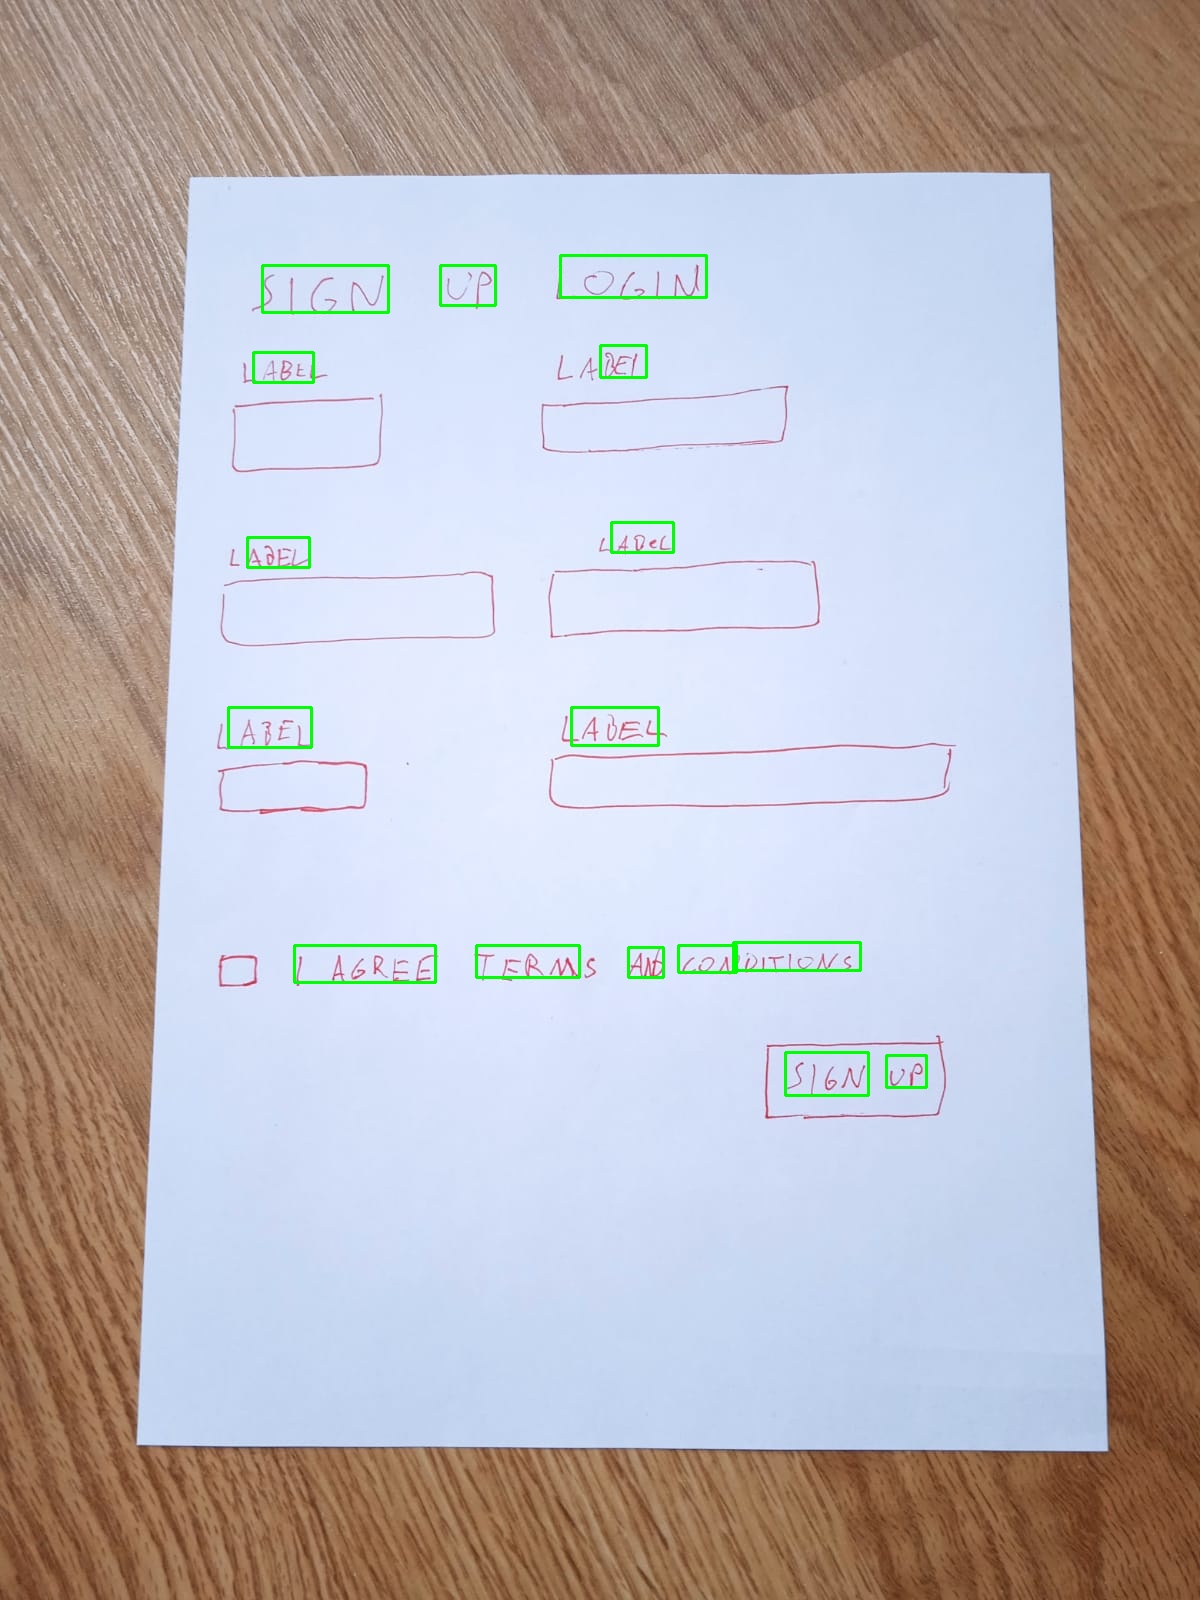 SIGN UP LOGIN
LABEL LABEL
LABEL LABeL
LABEL LABEL
I AGREE TERMS AND CONDITIONS
SIGN UP